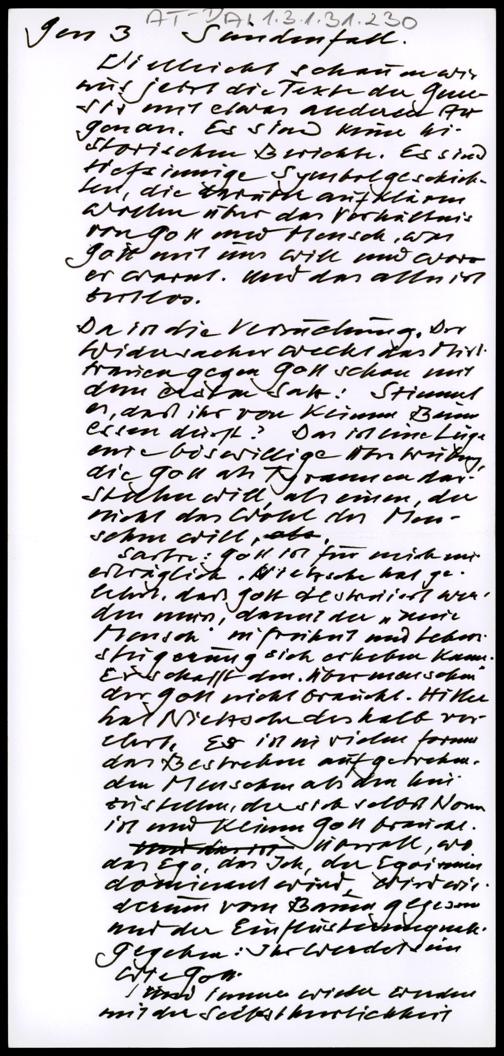 AT-DAL 1.3.1.31.230
Gen 3 Sündenfall.
Vielleicht schauen wir
uns jetzt die Texte der Gene-
sis mit etwas anderen Au
gen an. Es sind keine hi-
storischen Berichte. Es sind
tiefsinnige Symbolgeschich-
ten, die aufklären
wollen über das Verhältnis
von Gott und Mensch, was
Gott mit uns will und wovor
er warnt. Und das alles ist
zeitlos.
Da ist die Versuchung. Der
Widersacher weckt das Miß-
trauen gegen Gott schon mit
dem ersten Satz: Stimmt
es, daß ihr von keinem Baum
essen dürft? Das ist eine Lüge
eine böswillige Übertreibung,
die Gott als Tyrannen dar-
stellen will, als einen, der
nicht das Wohl des Men-
schen will,
Sartre: Gott ist für mich un
erträglich. Nietzsche hat ge-
lehrt, daß Gott destruiert wer-
den muß, damit der "neue
Mensch" in Freiheit und Lebens-
steigerung sich erheben kann.
Er schafft den Übermenschen
der Gott nicht braucht. Hitler
hat Nietzsche deshalb ver-
ehrt. Es ist in vielen Formen
das Bestreben aufgetreten,
den Menschen als den hin
zustellen, der sich selbst Norm
ist und keinen Gott braucht.
Und das ist Überall, wo
das Ego, das Ich, der Egoismus
dominant wird, wird wie-
derum vom Baum gegessen
und der Einflüsterung nach-
gegeben: Ihr werdet sein
wie Gott.
Und immer wieder enden
mit der Selbstherrlichkeit